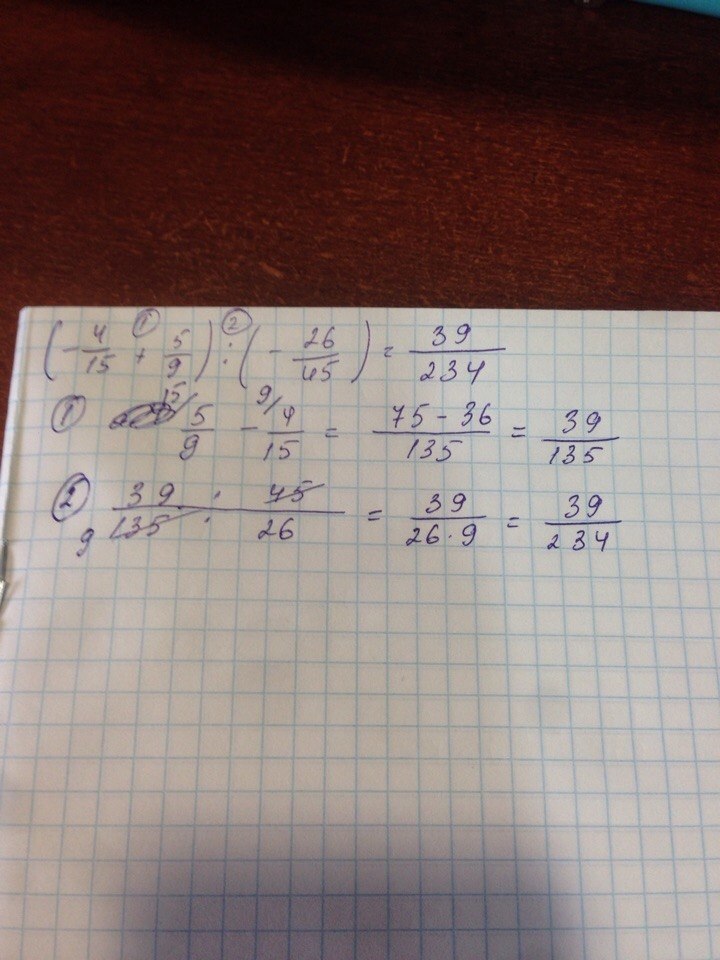 (-4/15 + 5/9) : (-26/45) = 39/234
① 5/9 - 4/15 = 75-36/135 = 39/135
② 39/135 : 45/26 = 39/26·9 = 39/234